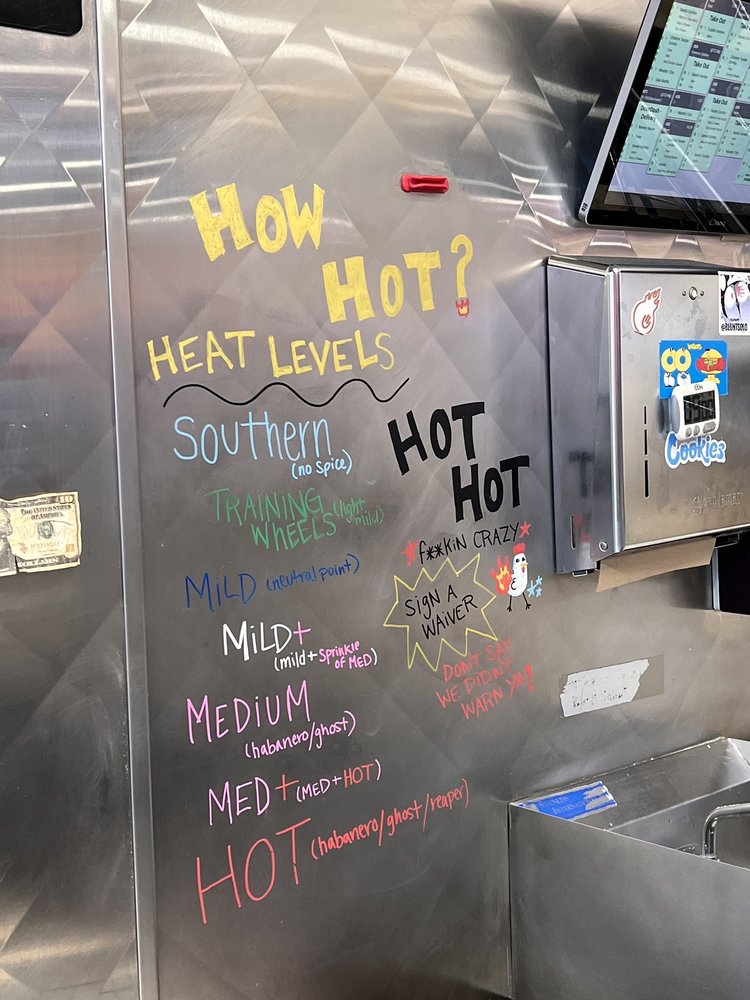 HOW
HOT?
HEAT LEVELS
Southern
(no spice)
TRAINING
WHEELS (light
mild)
MiLD (neutral point)
MiLD+
(mild + sprinkle
of MED)
MEDiUM
(habanero/ghost)
MED+ (MED+HOT)
HOT (habanero/ghost/reaper)
HOT
HOT
f**kiN CRAZY
SiGN A
WAiVER
DON'T SAY
WE DiDN'T
WARN YA!
Take Out
Take Out
Take Out
Cookies
THE UNITED STATES
OF AMERICA